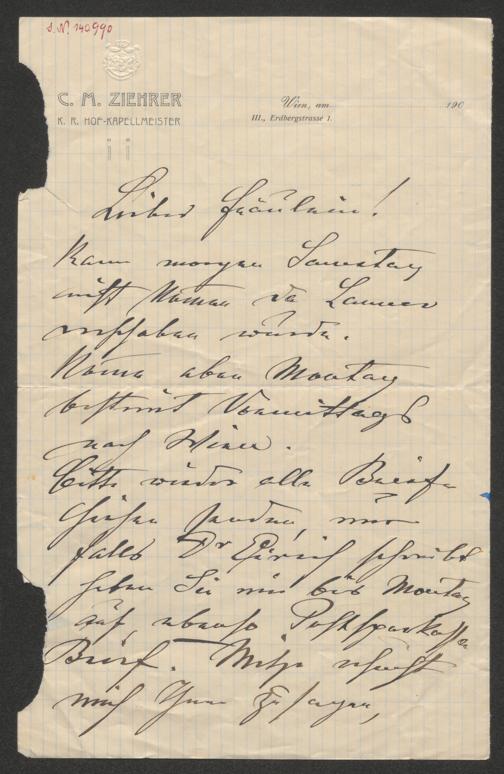 S. N. 140.990
C. M. ZIEHRER
K. K. HOF-KAPELLMEISTER
Wien, am 190
III., Erdbergstrasse 1.
Liebes Fräulein!
Kann morgen Samstag
nicht kommen da Lanner
verschoben wurde.
Komme aber Montag
bestimmt Vormittags
nach Wien.
Bitte wieder alle Brief-
senden, nur
falls Dr schreibt
heben Sie mir bis Montag
auf, ebenso Postsparkassen
Brief.
mich Ihnen zu sagen,